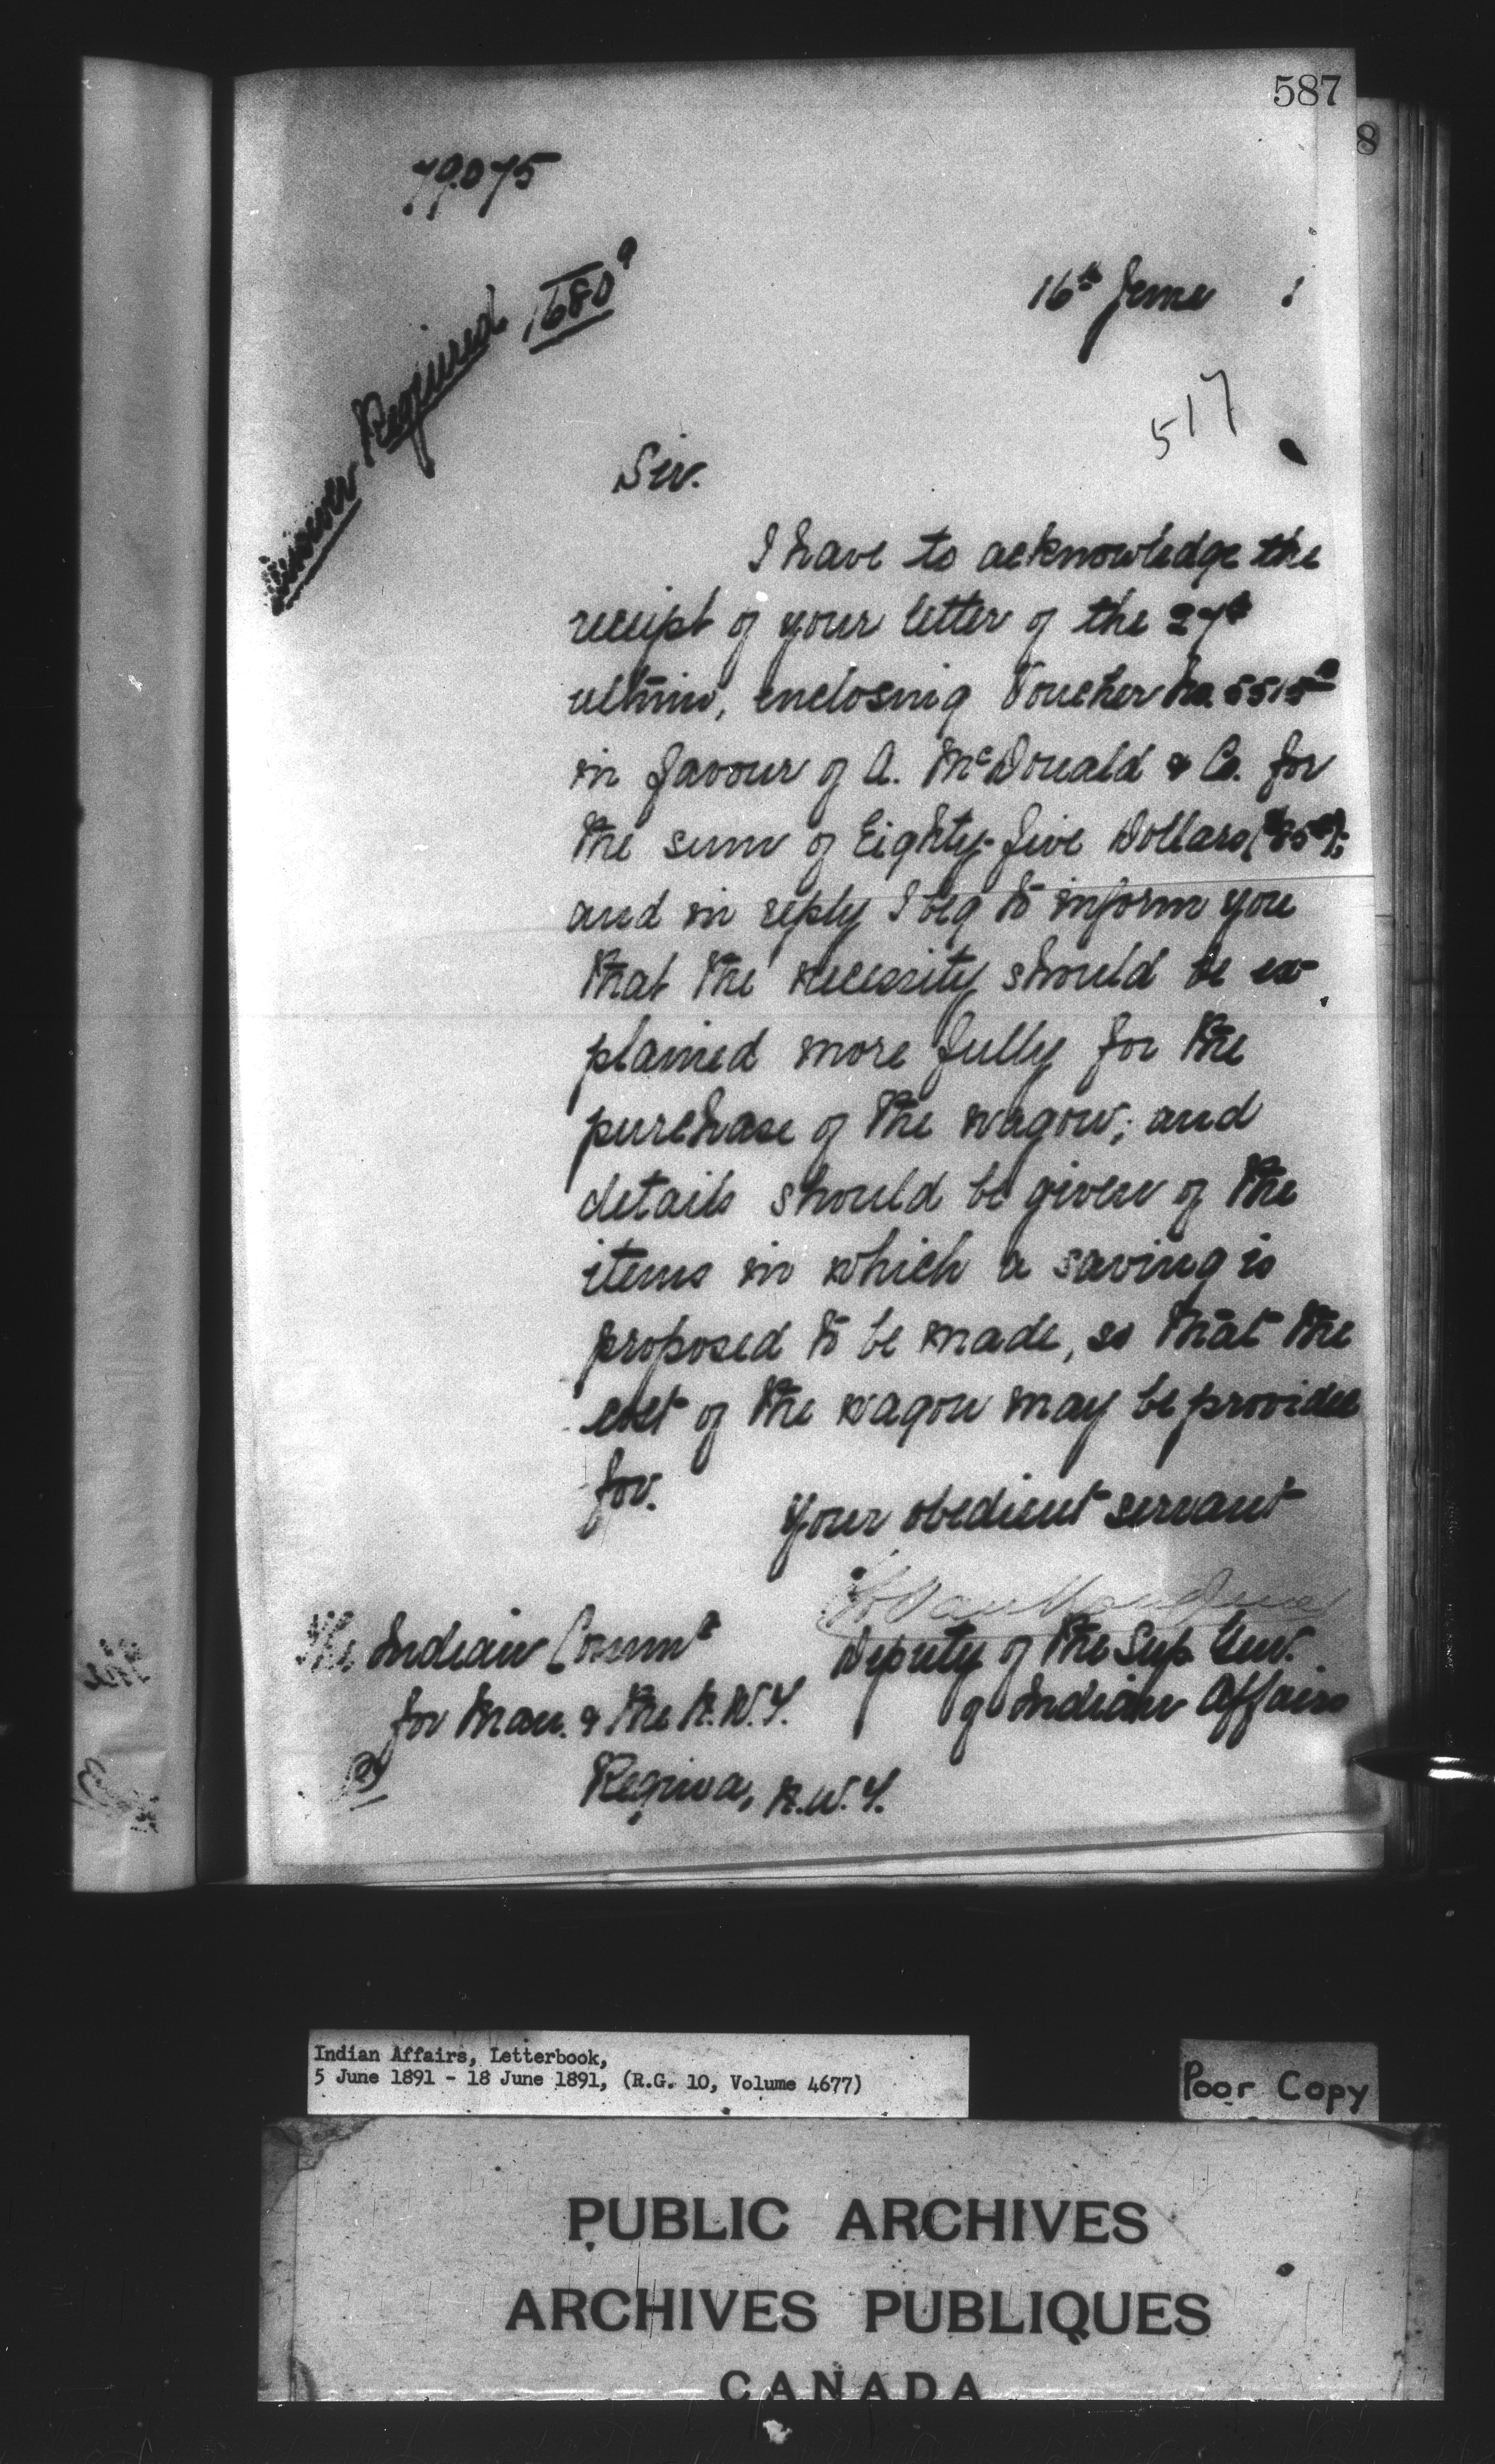 587
8
79.075
16th June
Answer Required
1680
517
Sir.
I have to acknowledge the
receipt of your letter of the 27th
ultimo, enclosing Voucher No. 5515
in favour of A. McDonald & Co. for
the sum of Eighty-five Dollars ($85
and in reply I beg to inform you
that the necessity should be ex-
plained more fully for the
purchase of the wagon; and
details should be given of the
items in which a saving is
proposed to be made, so that the
cost of the wagon may be provided
for.
Your obedient servant
Deputy of the Sup. Gen.
of Indian Affairs
The Indian Commr
for Man. & the N.W.T.
Regina, N.W.T.
Indian Affairs, Letterbook,
5 June 1891 - 18 June 1891, (R.G. 10, Volume 4677)
Poor Copy
PUBLIC ARCHIVES
ARCHIVES PUBLIQUES
CANADA